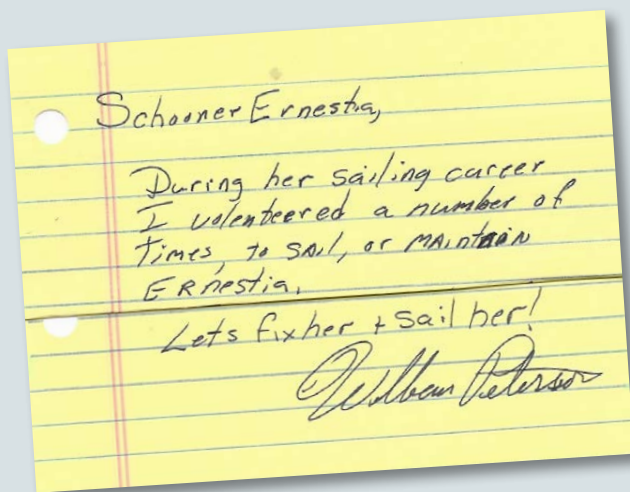 Schooner Ernestia,
During her sailing career
I volenteered a number of
times, to SAIL, or MAINTAIN
ERnestia.
Lets fix her + sail her!
William Peterson